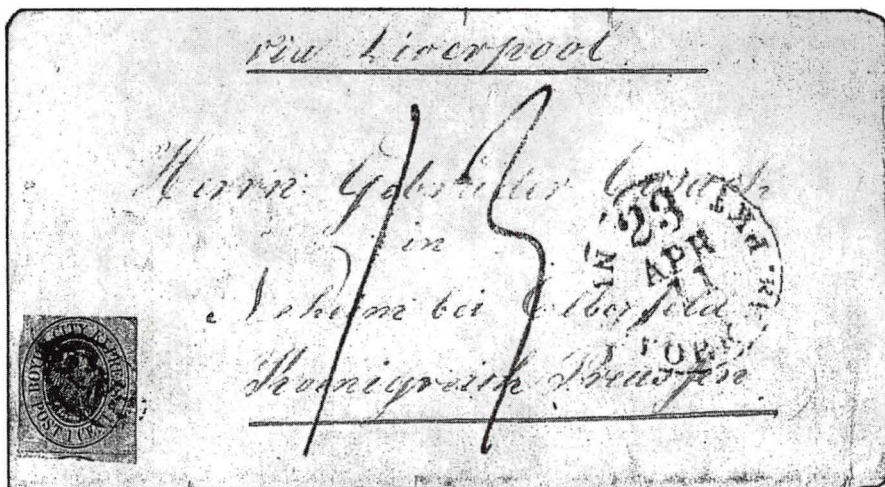 via Liverpool
13
Herrn Gebrüder
in
bei Elberfeld
Koenigreich Preussen
23
APR
11
PKT
YORK
BOYD'S CITY EXPRESS POST 1 CENT